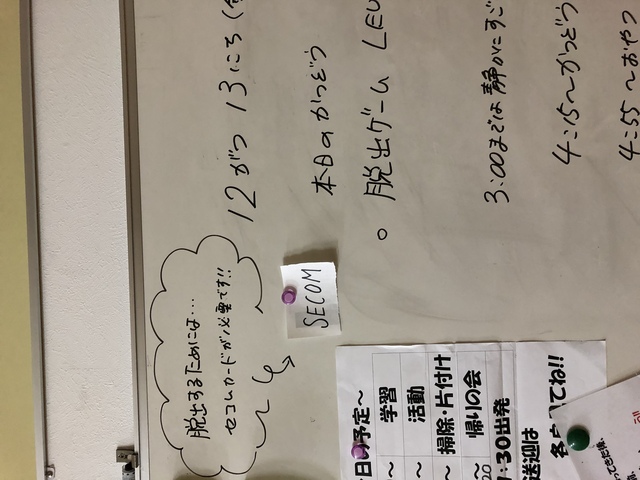 12がつ 13にち(
本日のかつどう
○ 脱出ゲーム LEV
3:00までは静かにすご
4:15〜かつどう
4:55〜おやつ
脱出するためには…
セコムカードが必要です!!
SECOM
日の予定〜
〜 学習
〜 活動
〜 掃除・片付け
〜 帰りの会
:30出発
送迎は
てね!!